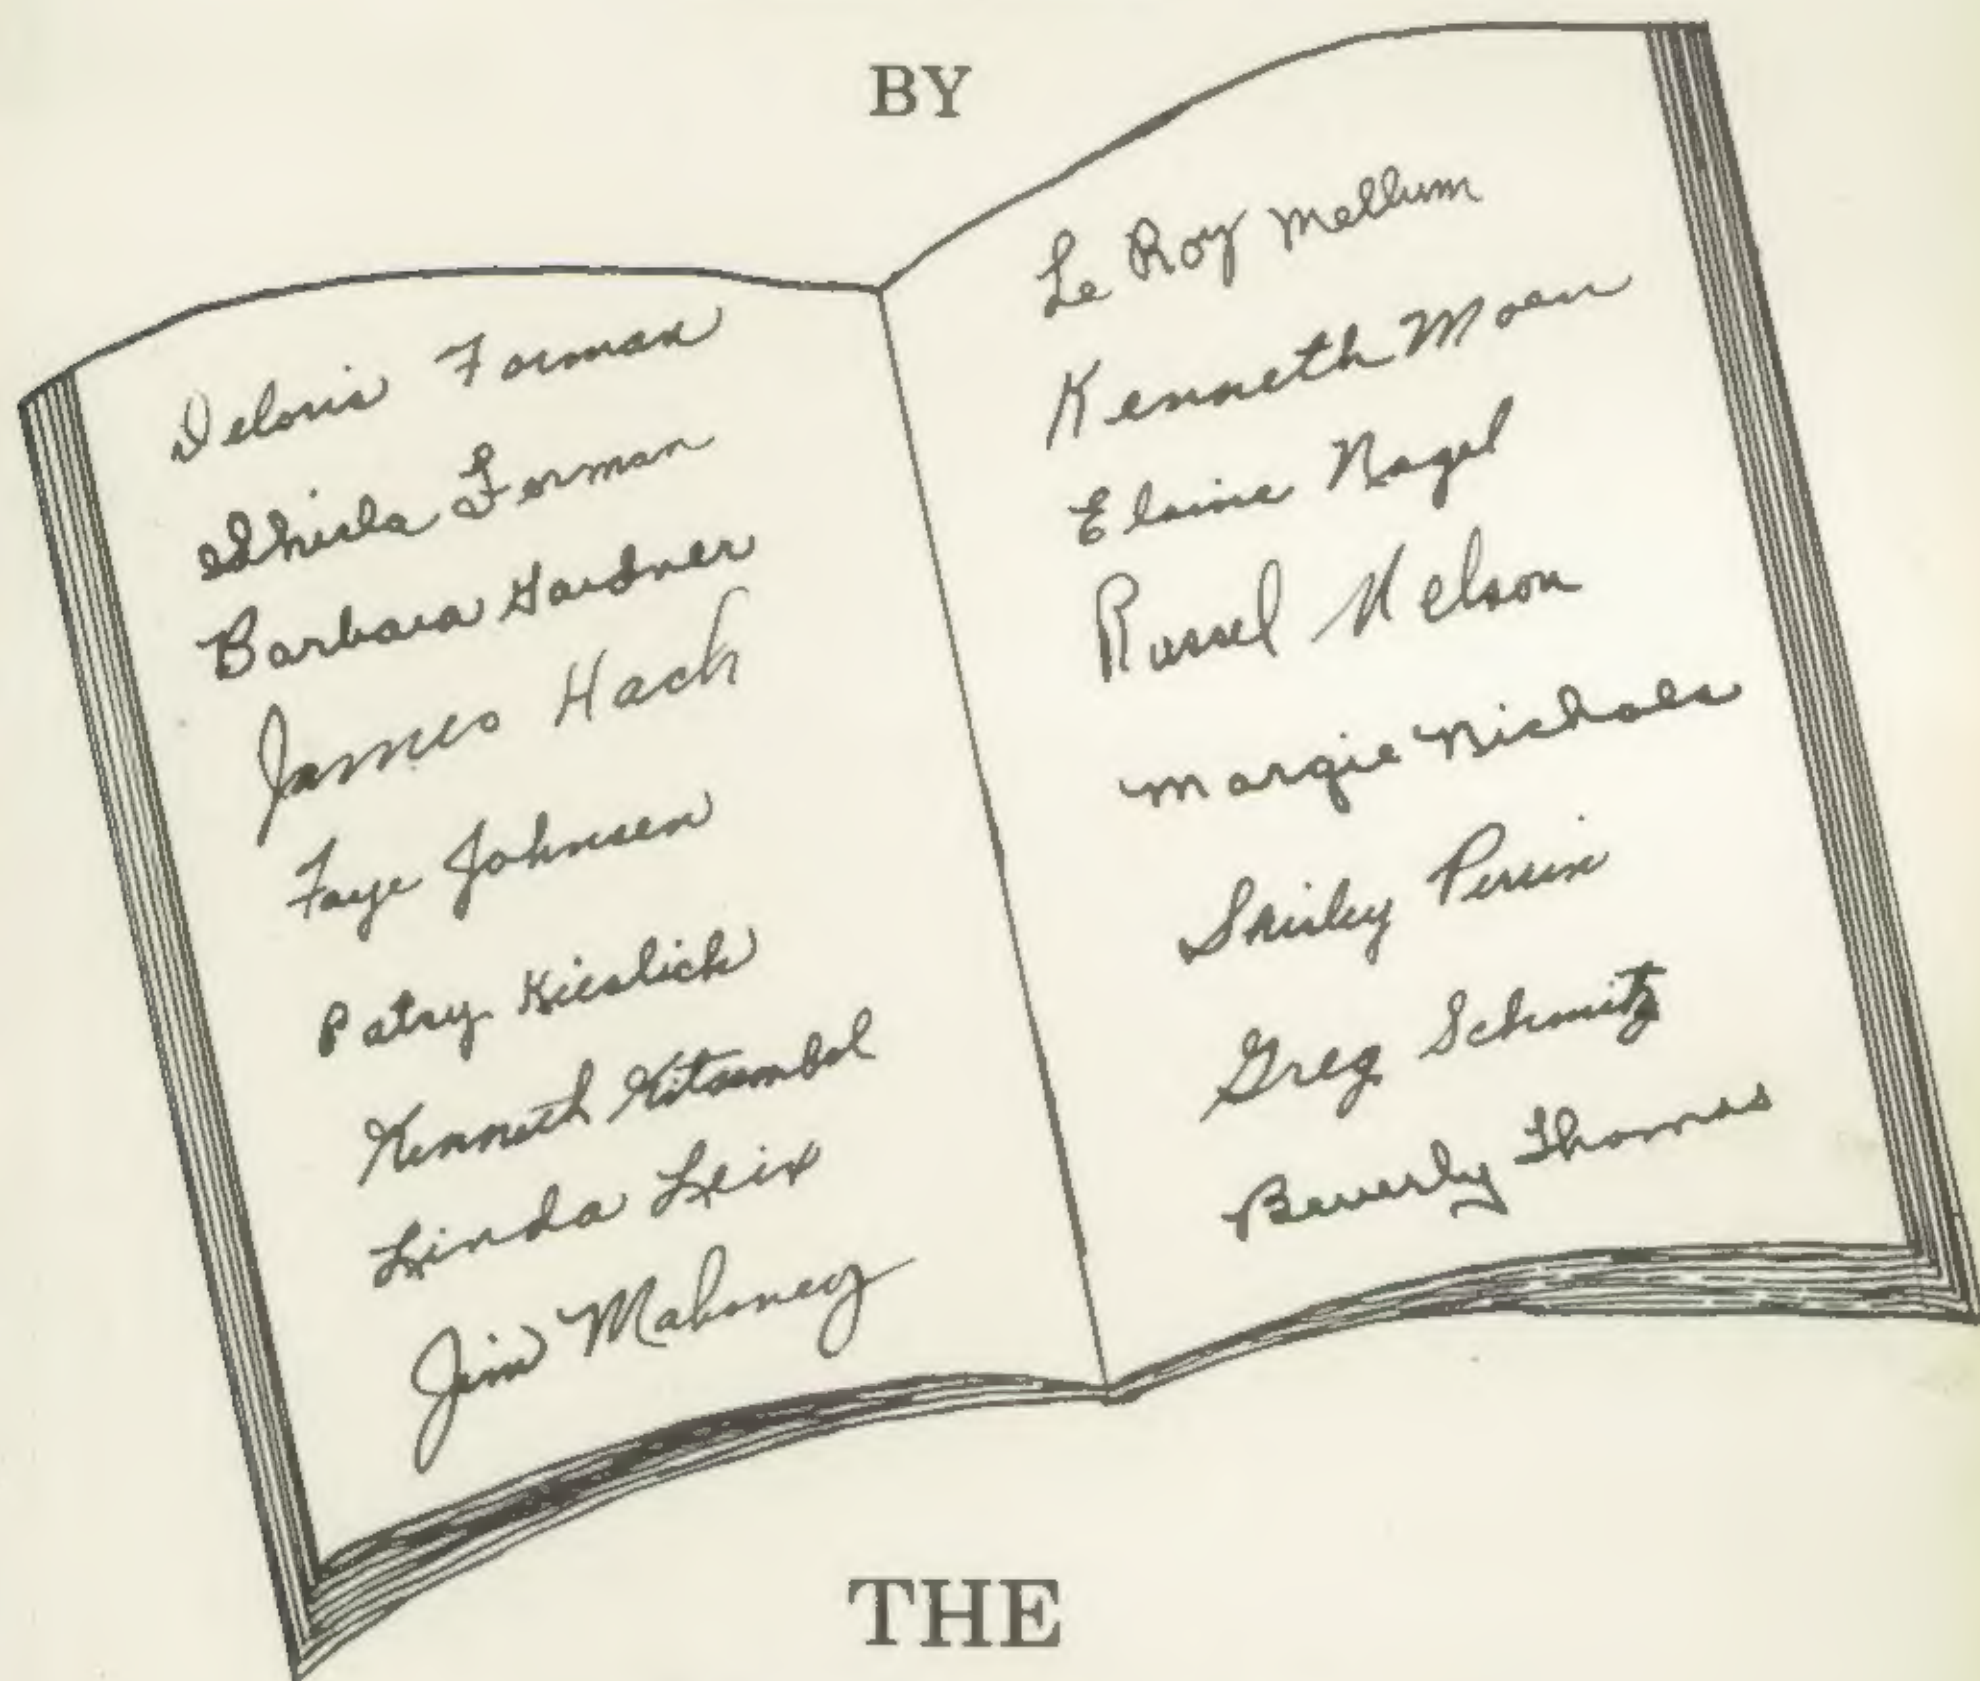 BY
Deloris Forman
Shiela Forman
Barbara Gardner
James Hack
Faye Johnsen
Patsy Kieslich
Kenneth Kitsembel
Linda Leix
Jim Mahoney
Le Roy Mellum
Kenneth Moen
Elaine Nagel
Russel Nelson
Margie Nichols
Shirley Perrin
Greg Schmitz
Beverly Thomas
THE